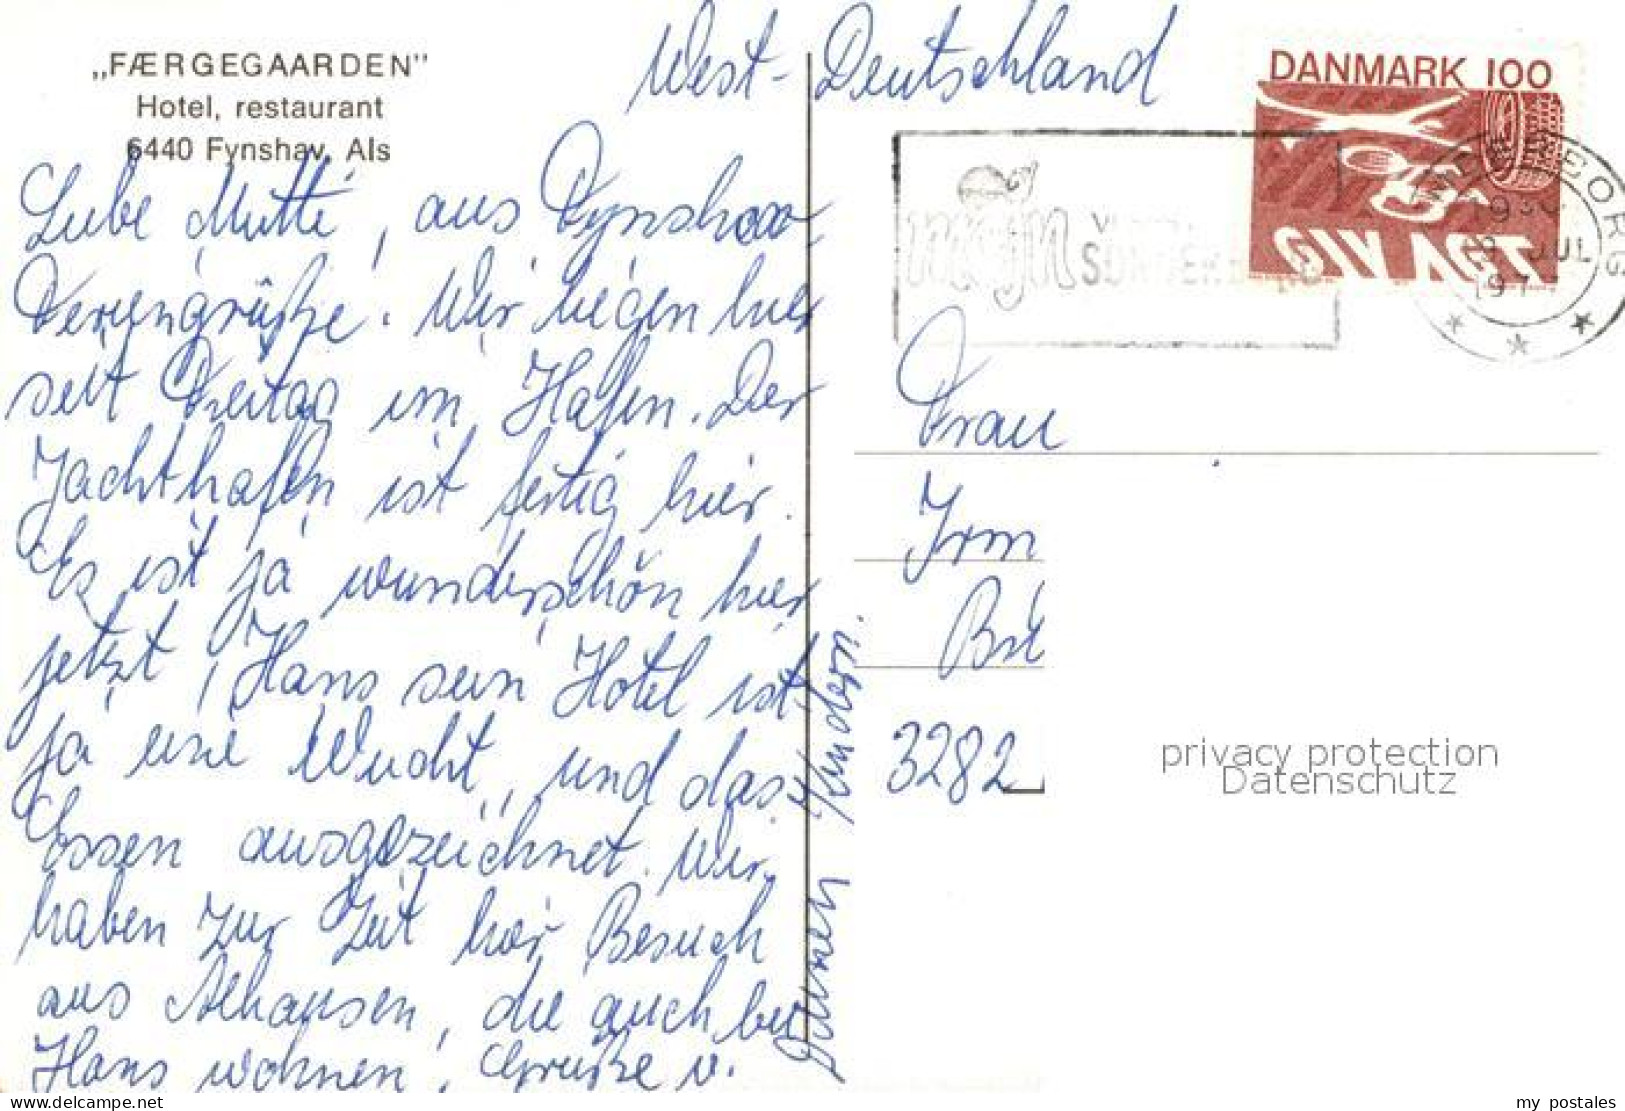 „FÆRGEGAARDEN"
Hotel, restaurant
6440 Fynshav, Als
Liebe Mutti, aus Fynshav
Feriengrüße. Wir liegen hier
seit Freitag im Hafen. Der
Jachthafen ist fertig hier.
Es ist ja wunderschön hier
jetzt, Hans sein Hotel ist
ja eine Wucht, und das
Essen ausgezeichnet. Wir
haben zur Zeit hier Besuch
aus Ahausen, die auch bei
Hans wohnen. Grüße v.
Deinen Kindern.
West-Deutschland
DANMARK 100
GIV AGT
mojn
19
JUL
197
Frau
Irm
3282
privacy protection
Datenschutz
my postales